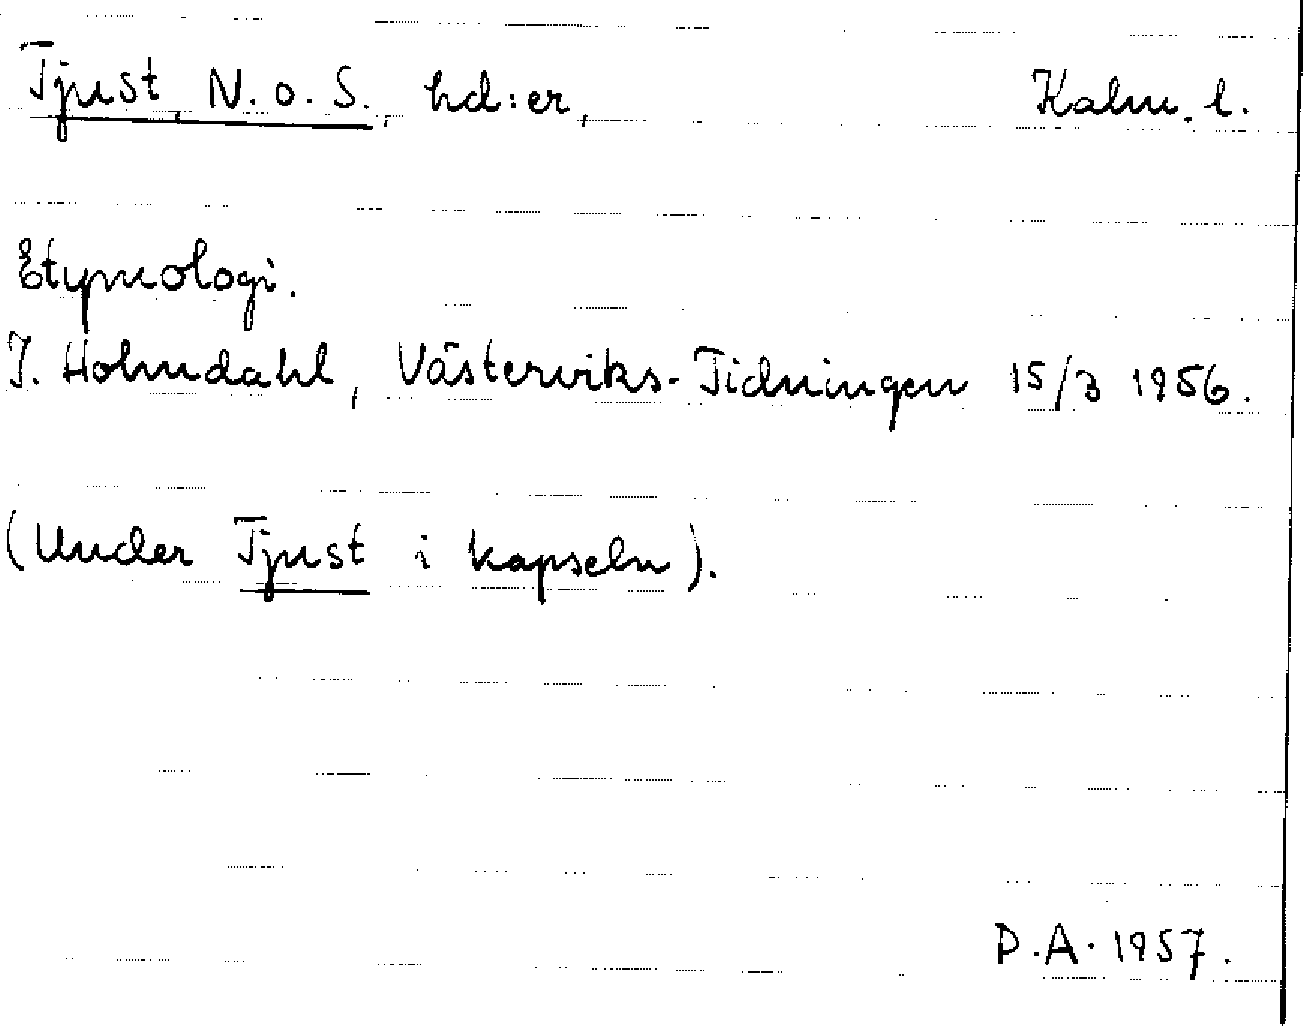 Tjust, N. o. S., hd:er, Kalm. l.
Etymologi.
J. Holmdahl, Västerviks-Tidningen 15/3 1956.
(Under Tjust i kapseln).
P.A. 1957.